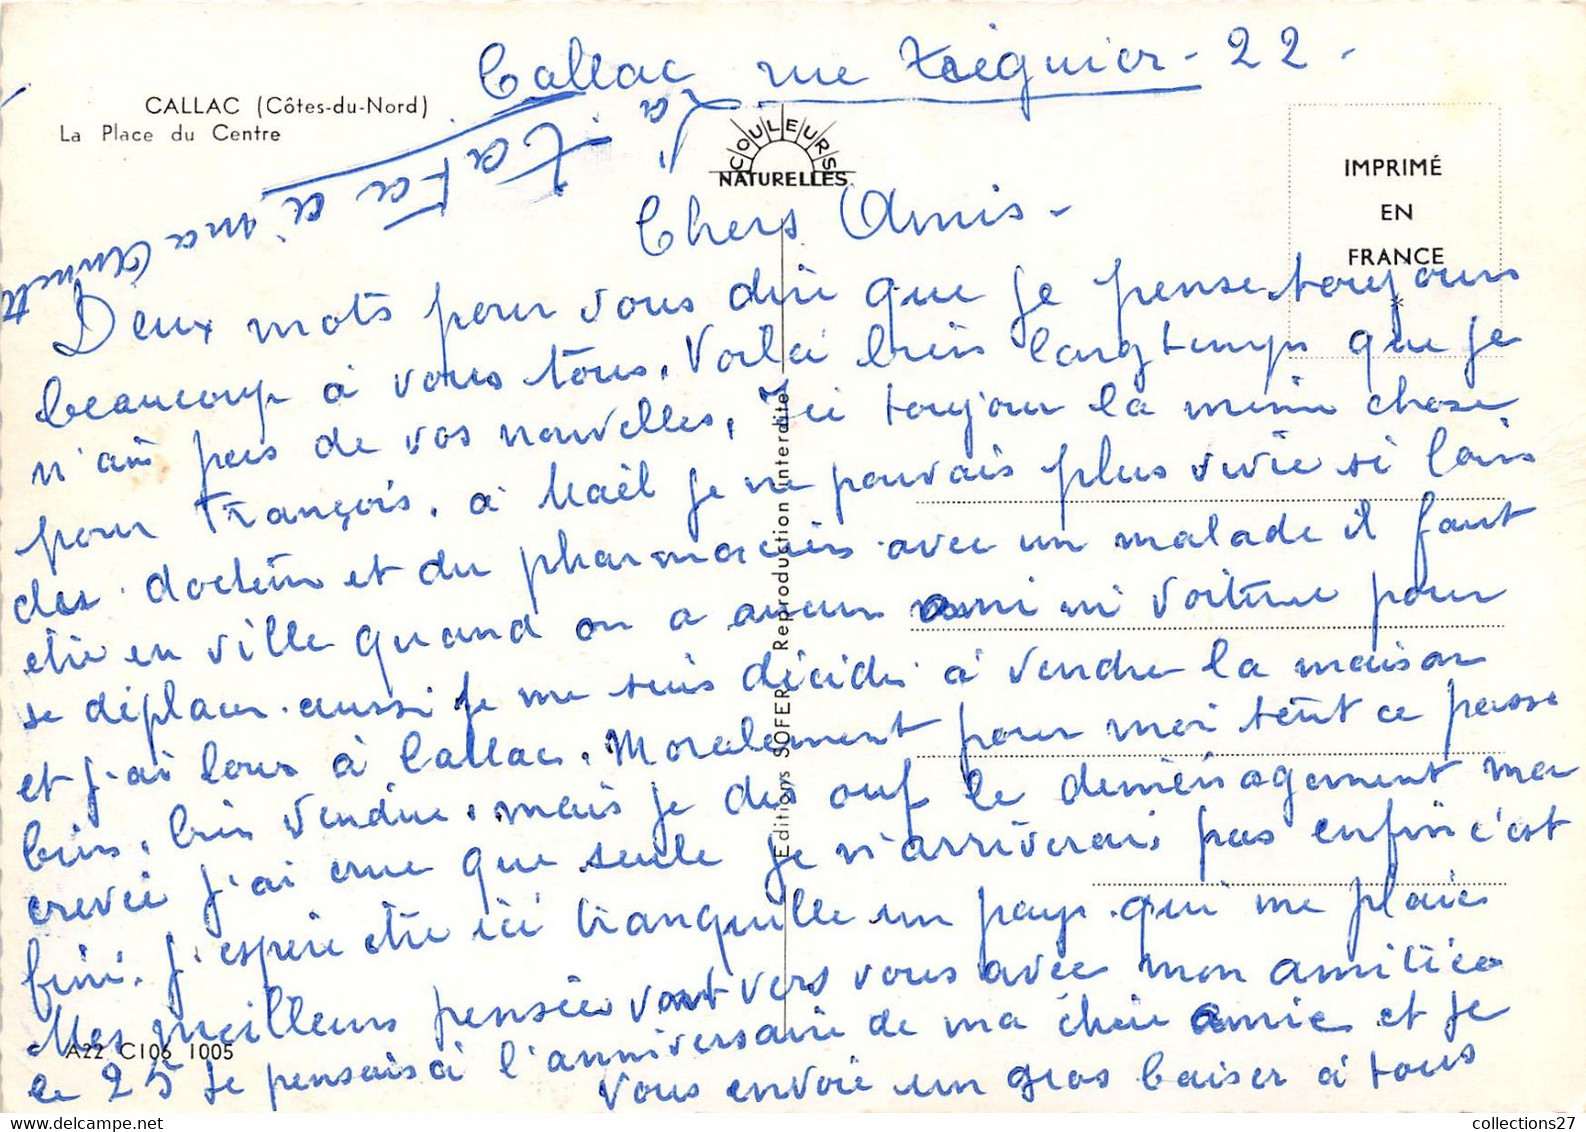 Callac rue Tréguier - 22 -
CALLAC (Côtes-du-Nord)
La Place du Centre
COULEURS
NATURELLES
IMPRIMÉ
EN
FRANCE
Chers Amis -
Deux mots pour vous dire que je pense toujours
beaucoup à vous tous. Voilà bien longtemps que je
n'ais pas de vos nouvelles, Ici toujour la même chose
pour François. à Maël je ne pouvais plus vivre si loin
des docteur et du pharmacien avec un malade il faut
etre en ville quand on a aucun ami ni voiture pour
se déplacer. aussi je me suis décidé à vendre la maison
et j'ai louer à Callac. Moralement pour moi tout ce passe
bien, bien vendue, mais je dis ouf le deménagement ma
crevée j'ai crue que seule je n'arriverai pas enfin c'est
fini. J'espère etre ici tranquille un pays qui me plait
Mes meilleurs pensées vont vers vous avec mon amitiée
le 25 je pensais à l'anniversaire de ma chère amie et je
vous envoie un gros baiser à tous
à ma
Editions SOFER Reproduction interdite
A22 C106 1005
collections27